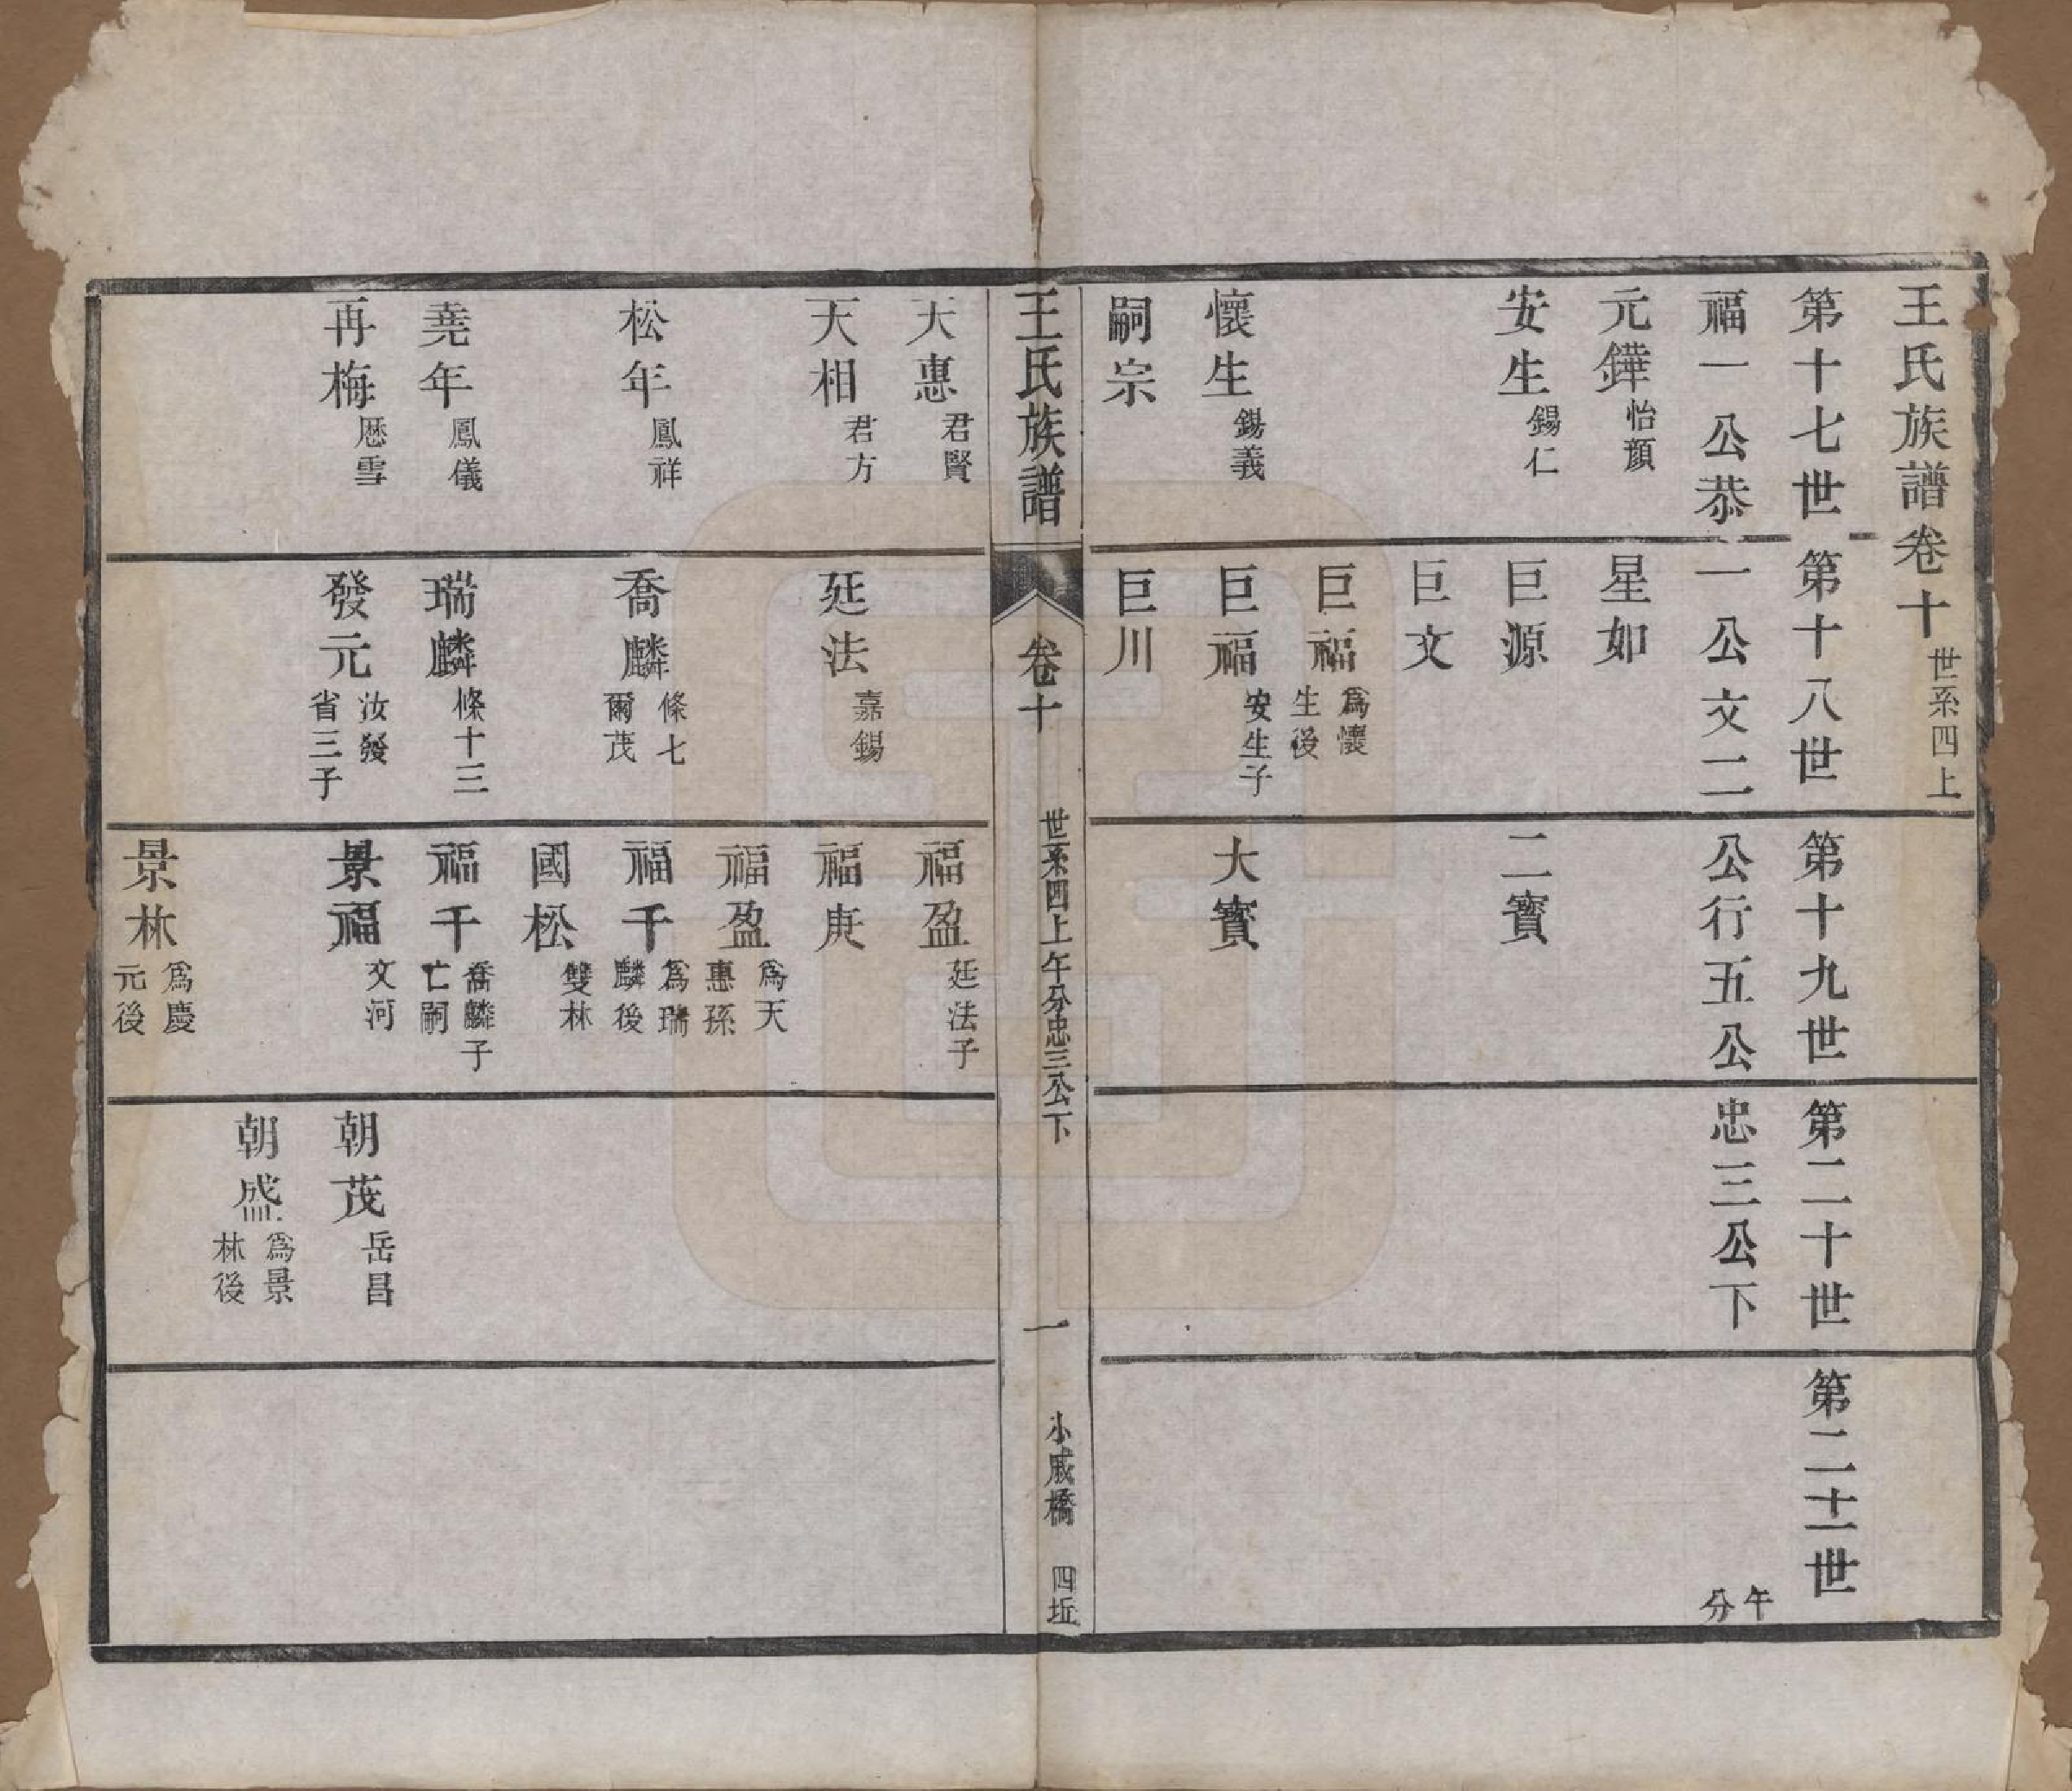 王氏族譜卷十 世系四上
第十七世 第十八世 第十九世 第二十世 第二十一世
福一公恭一公文二公行五公忠三公下 午分
元鏵 怡顏 星如
安生 錫仁 巨源 二寶
巨文
巨福 為懷生後
懷生 錫義 巨福 安生子 大寶
嗣宗 巨川
王氏族譜 卷十 世系四上午分忠三公下 一 小戚橋 四坵
天惠 君賢 福盈 廷法子
天相 君方 廷法 嘉錫 福庚
福盈 為天惠孫
松年 鳳祥 喬麟 條七爾茂 福千 為瑞麟後
國松 雙林
堯年 鳳儀 瑞麟 條十三 福千 喬麟子亡嗣
再梅 歴雪 發元 汝發省三子 景福 文河 朝茂 岳昌
朝盛 為景林後
景林 為慶元後